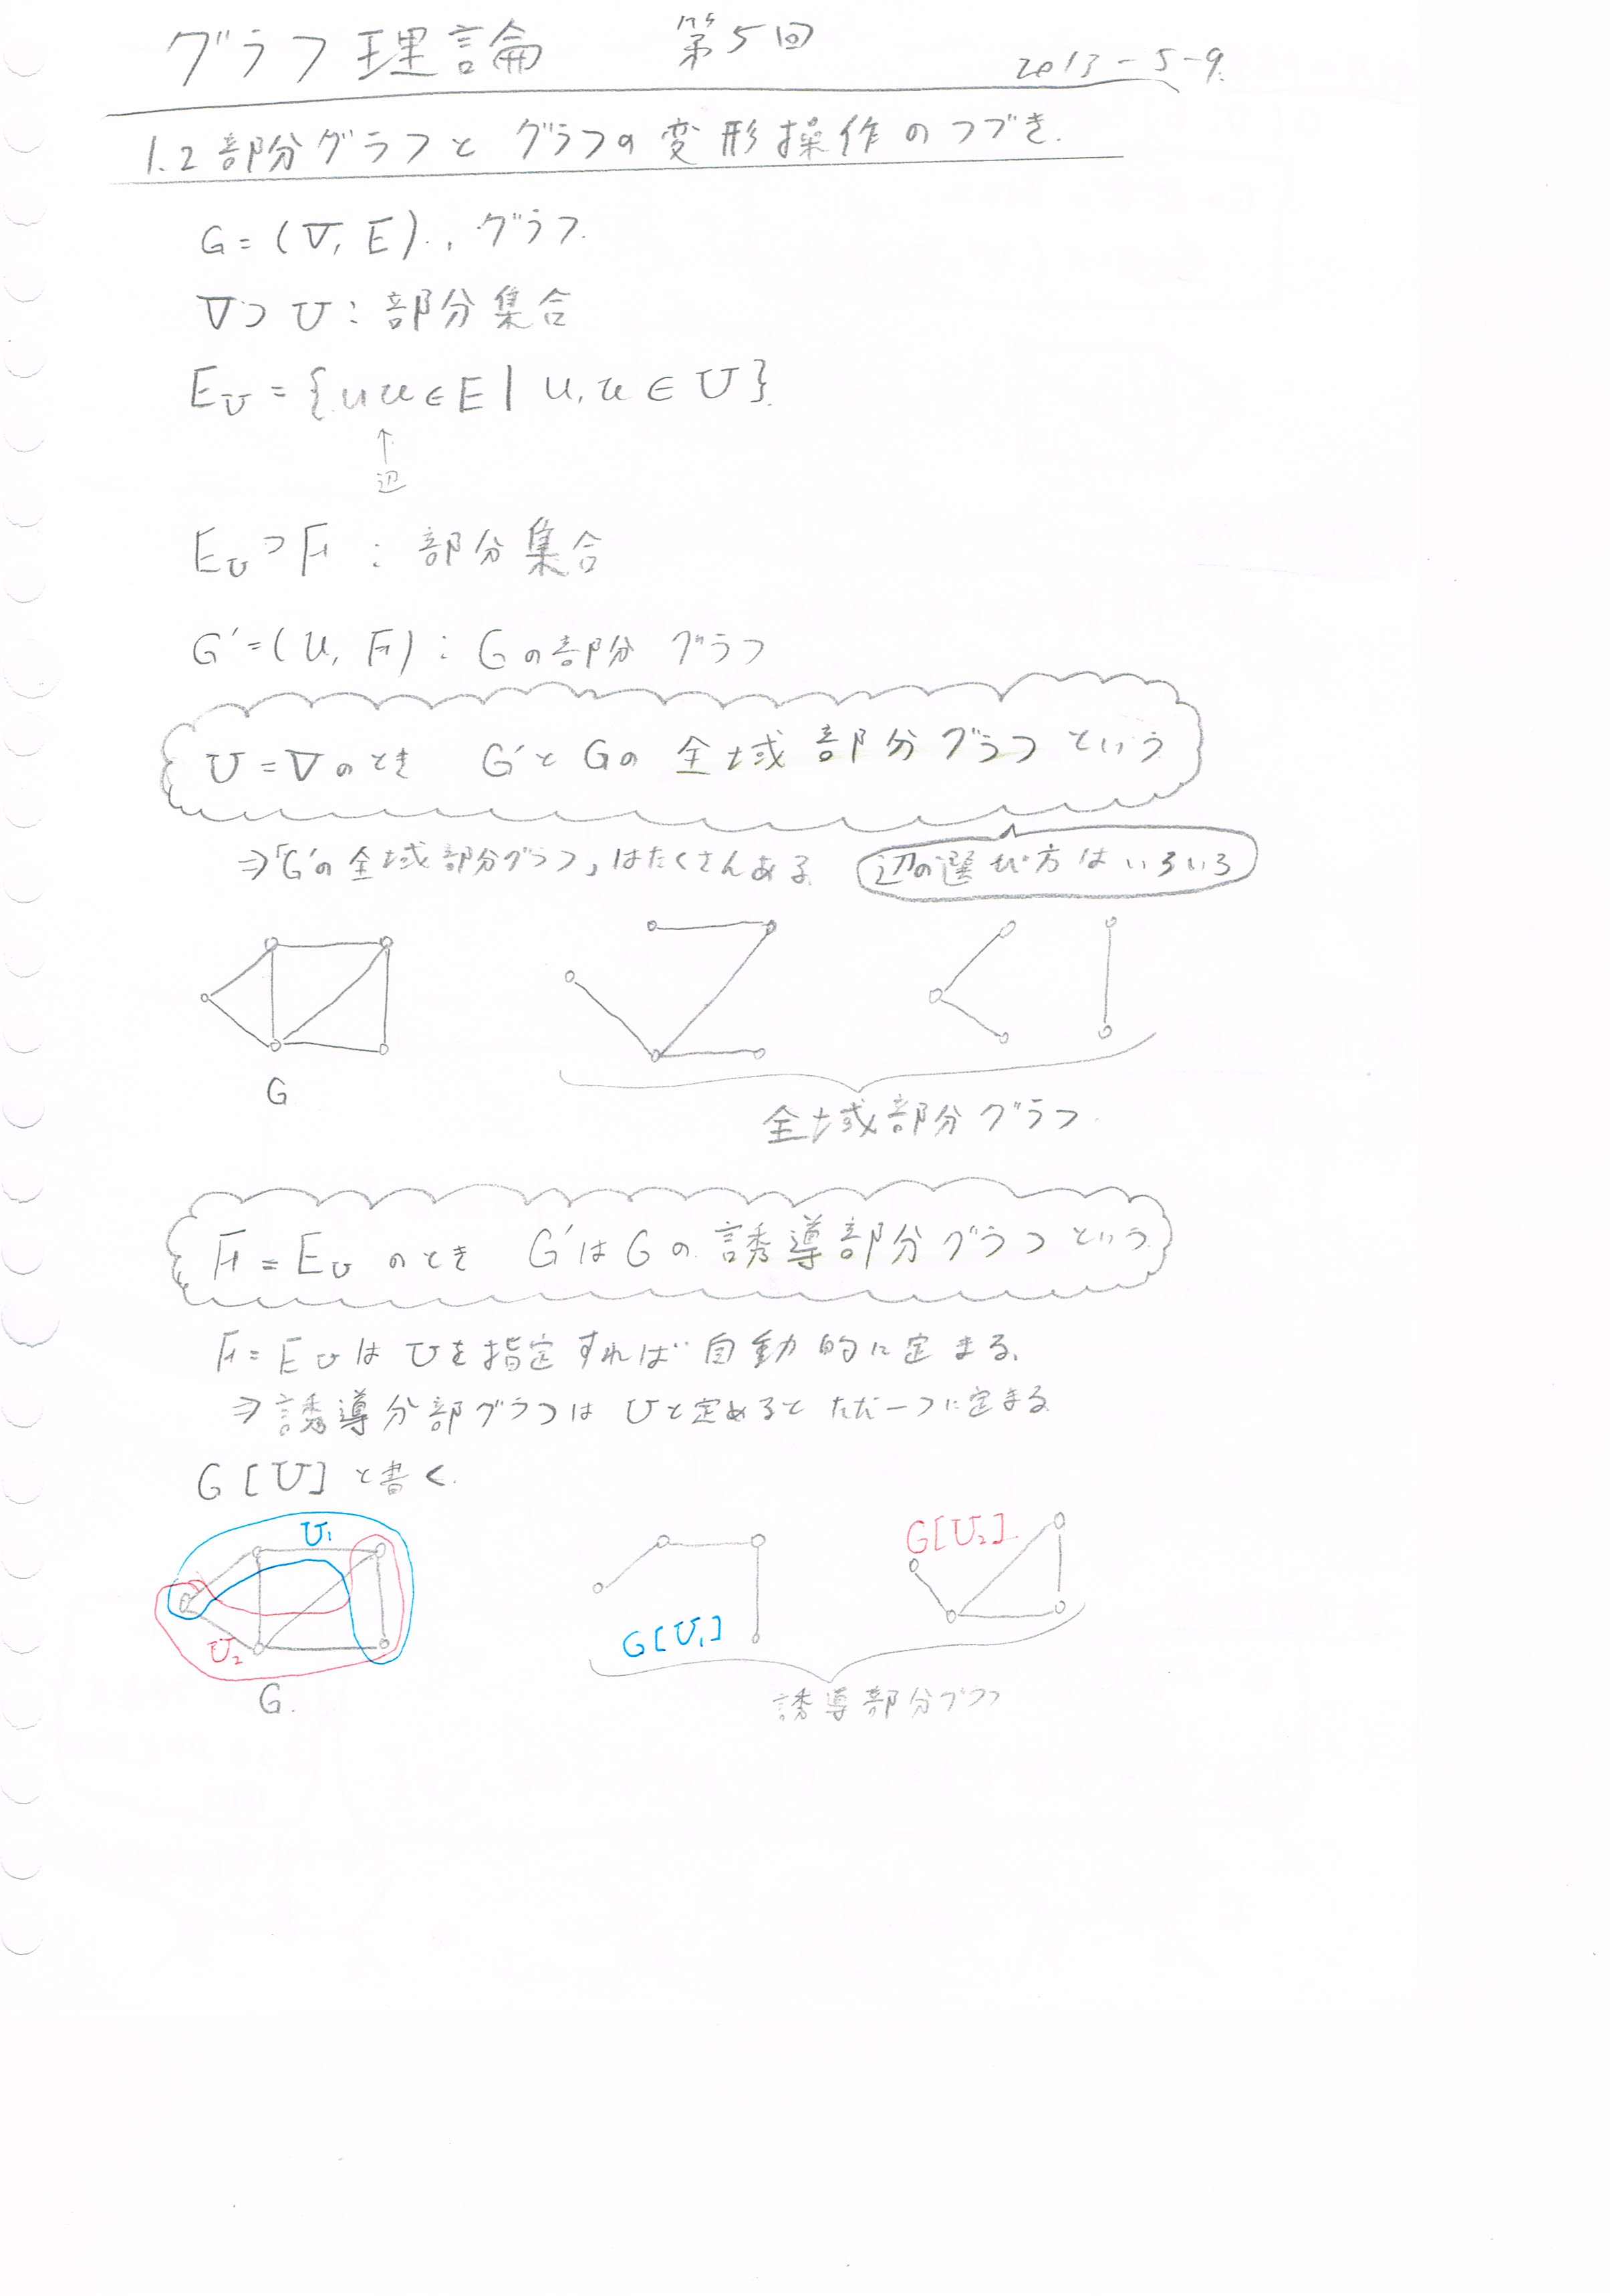 グラフ理論 第5回
2013-5-9.
1.2 部分グラフと グラフの変形操作のつづき.
G=(V, E)., グラフ.
V⊃U: 部分集合
E_U={uu∈E| u,u∈U}.
↑
辺
E_U⊃F : 部分集合
G'=(U, F): Gの部分グラフ
U=Vのとき G'と Gの 全域部分グラフという
⇒「Gの全域部分グラフ」はたくさんある 辺の選び方はいろいろ
G
全域部分グラフ.
F=E_U のとき G'はGの誘導部分グラフという
F=E_Uは Uを指定すれば自動的に定まる.
⇒誘導分部グラフは Uと定めると ただ一つに定まる
G[U]と書く.
U₁
G[U₂].
U₂
G[U₁]
G.
誘導部分グラフ